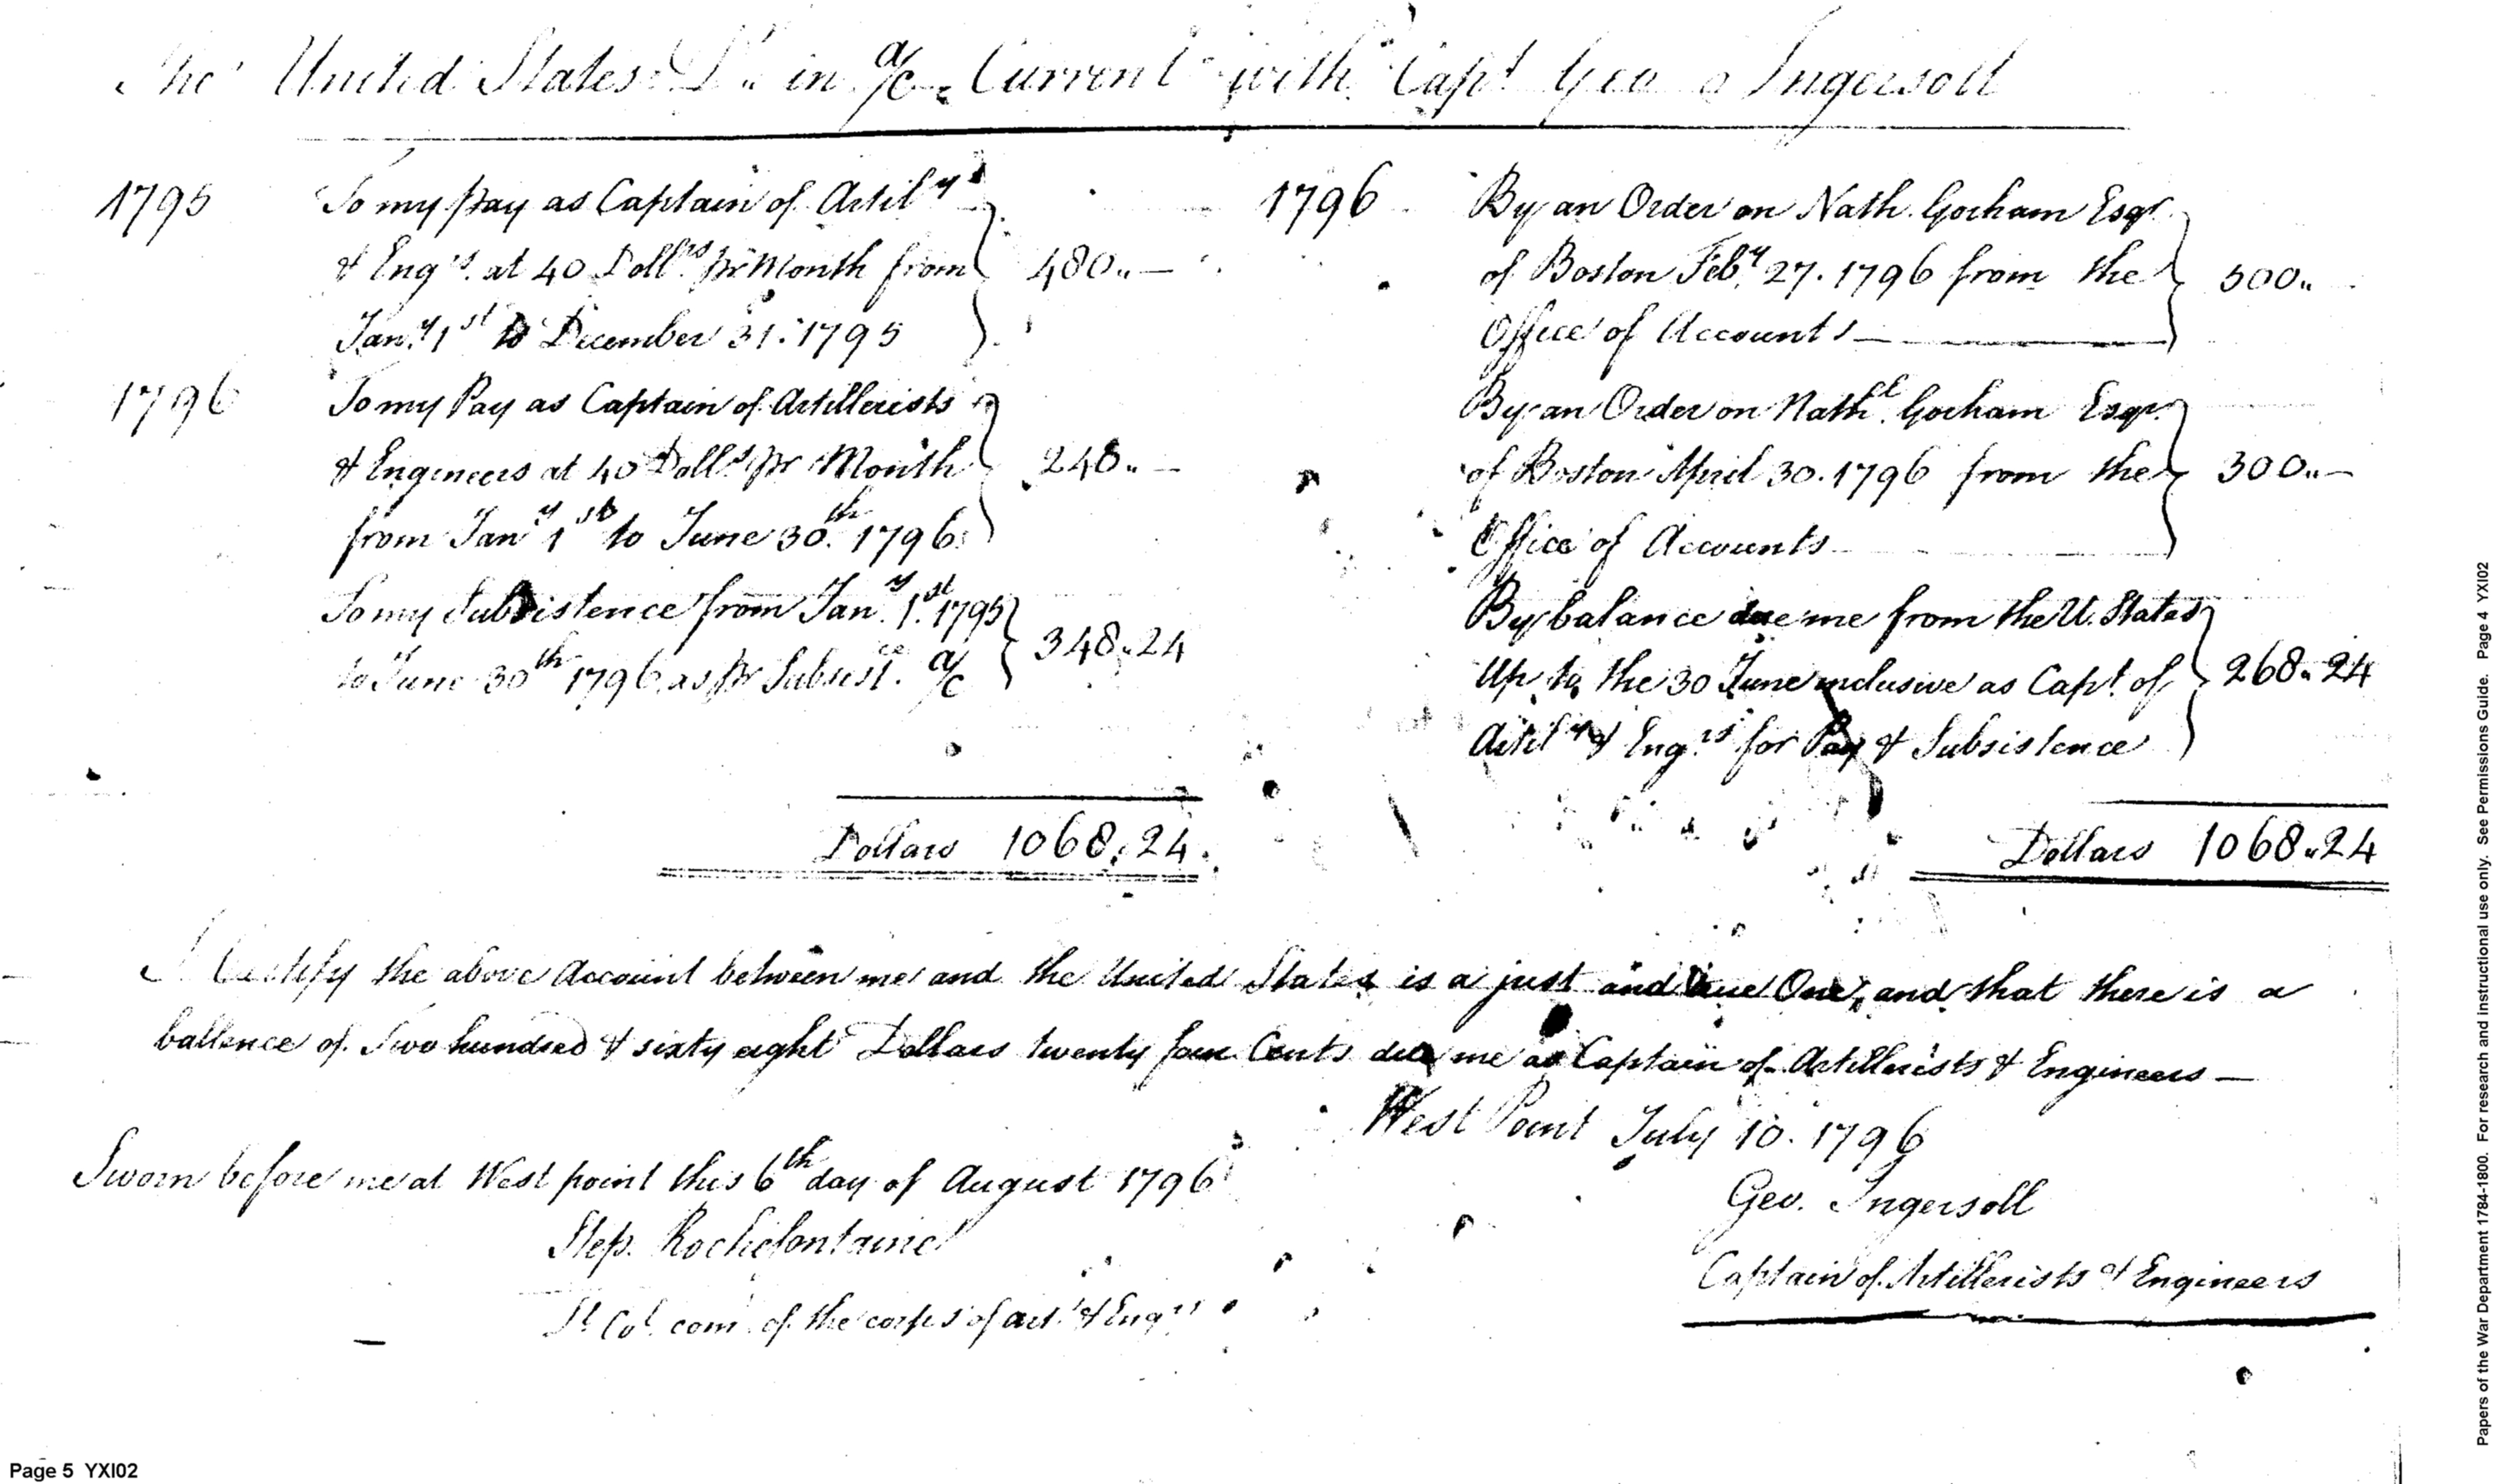 The United States Dr. in a/c Current with Capt Geo Ingersoll
1795 To my pay as Captain of Artily
& Engrs. at 40 Dollrs pr Month from
Jany 1st to December 31. 1795
480..—
1796 To my Pay as Captain of Artillerists
& Engineers at 40 Dolls pr Month
from Jany 1st to June 30th 1796
240..—
To my Subsistence from Jany. 1st. 1795
to June 30th 1796 as pr Subsistce. a/c
348..24
Dollars 1068..24
1796 By an Order on Nath. Gorham Esqr.
of Boston Feby 27. 1796 from the
Office of Accounts
500..
By an Order on Nathl. Gorham Esqr.
of Boston April 30. 1796 from the
Office of Accounts
300..—
By balance due me from the U. States
Up to the 30 June inclusive as Capt. of
Artily & Engrs for Pay & Subsistence
268..24
Dollars 1068..24
I Certify the above Account between me and the United States is a just and true One, and that there is a
ballence of Two hundred & sixty eight Dollars twenty four Cents due me as Captain of Artillerists & Engineers —
West Point July 10. 1796
Geo. Ingersoll
Captain of Artillerists & Engineers
Sworn before me at West point this 6th day of August 1796
Step. Rochefontaine
Lt Col com. of the corps of art. & Engrs
Page 5 YXI02
Papers of the War Department 1784-1800. For research and instructional use only. See Permissions Guide. Page 4 YXI02